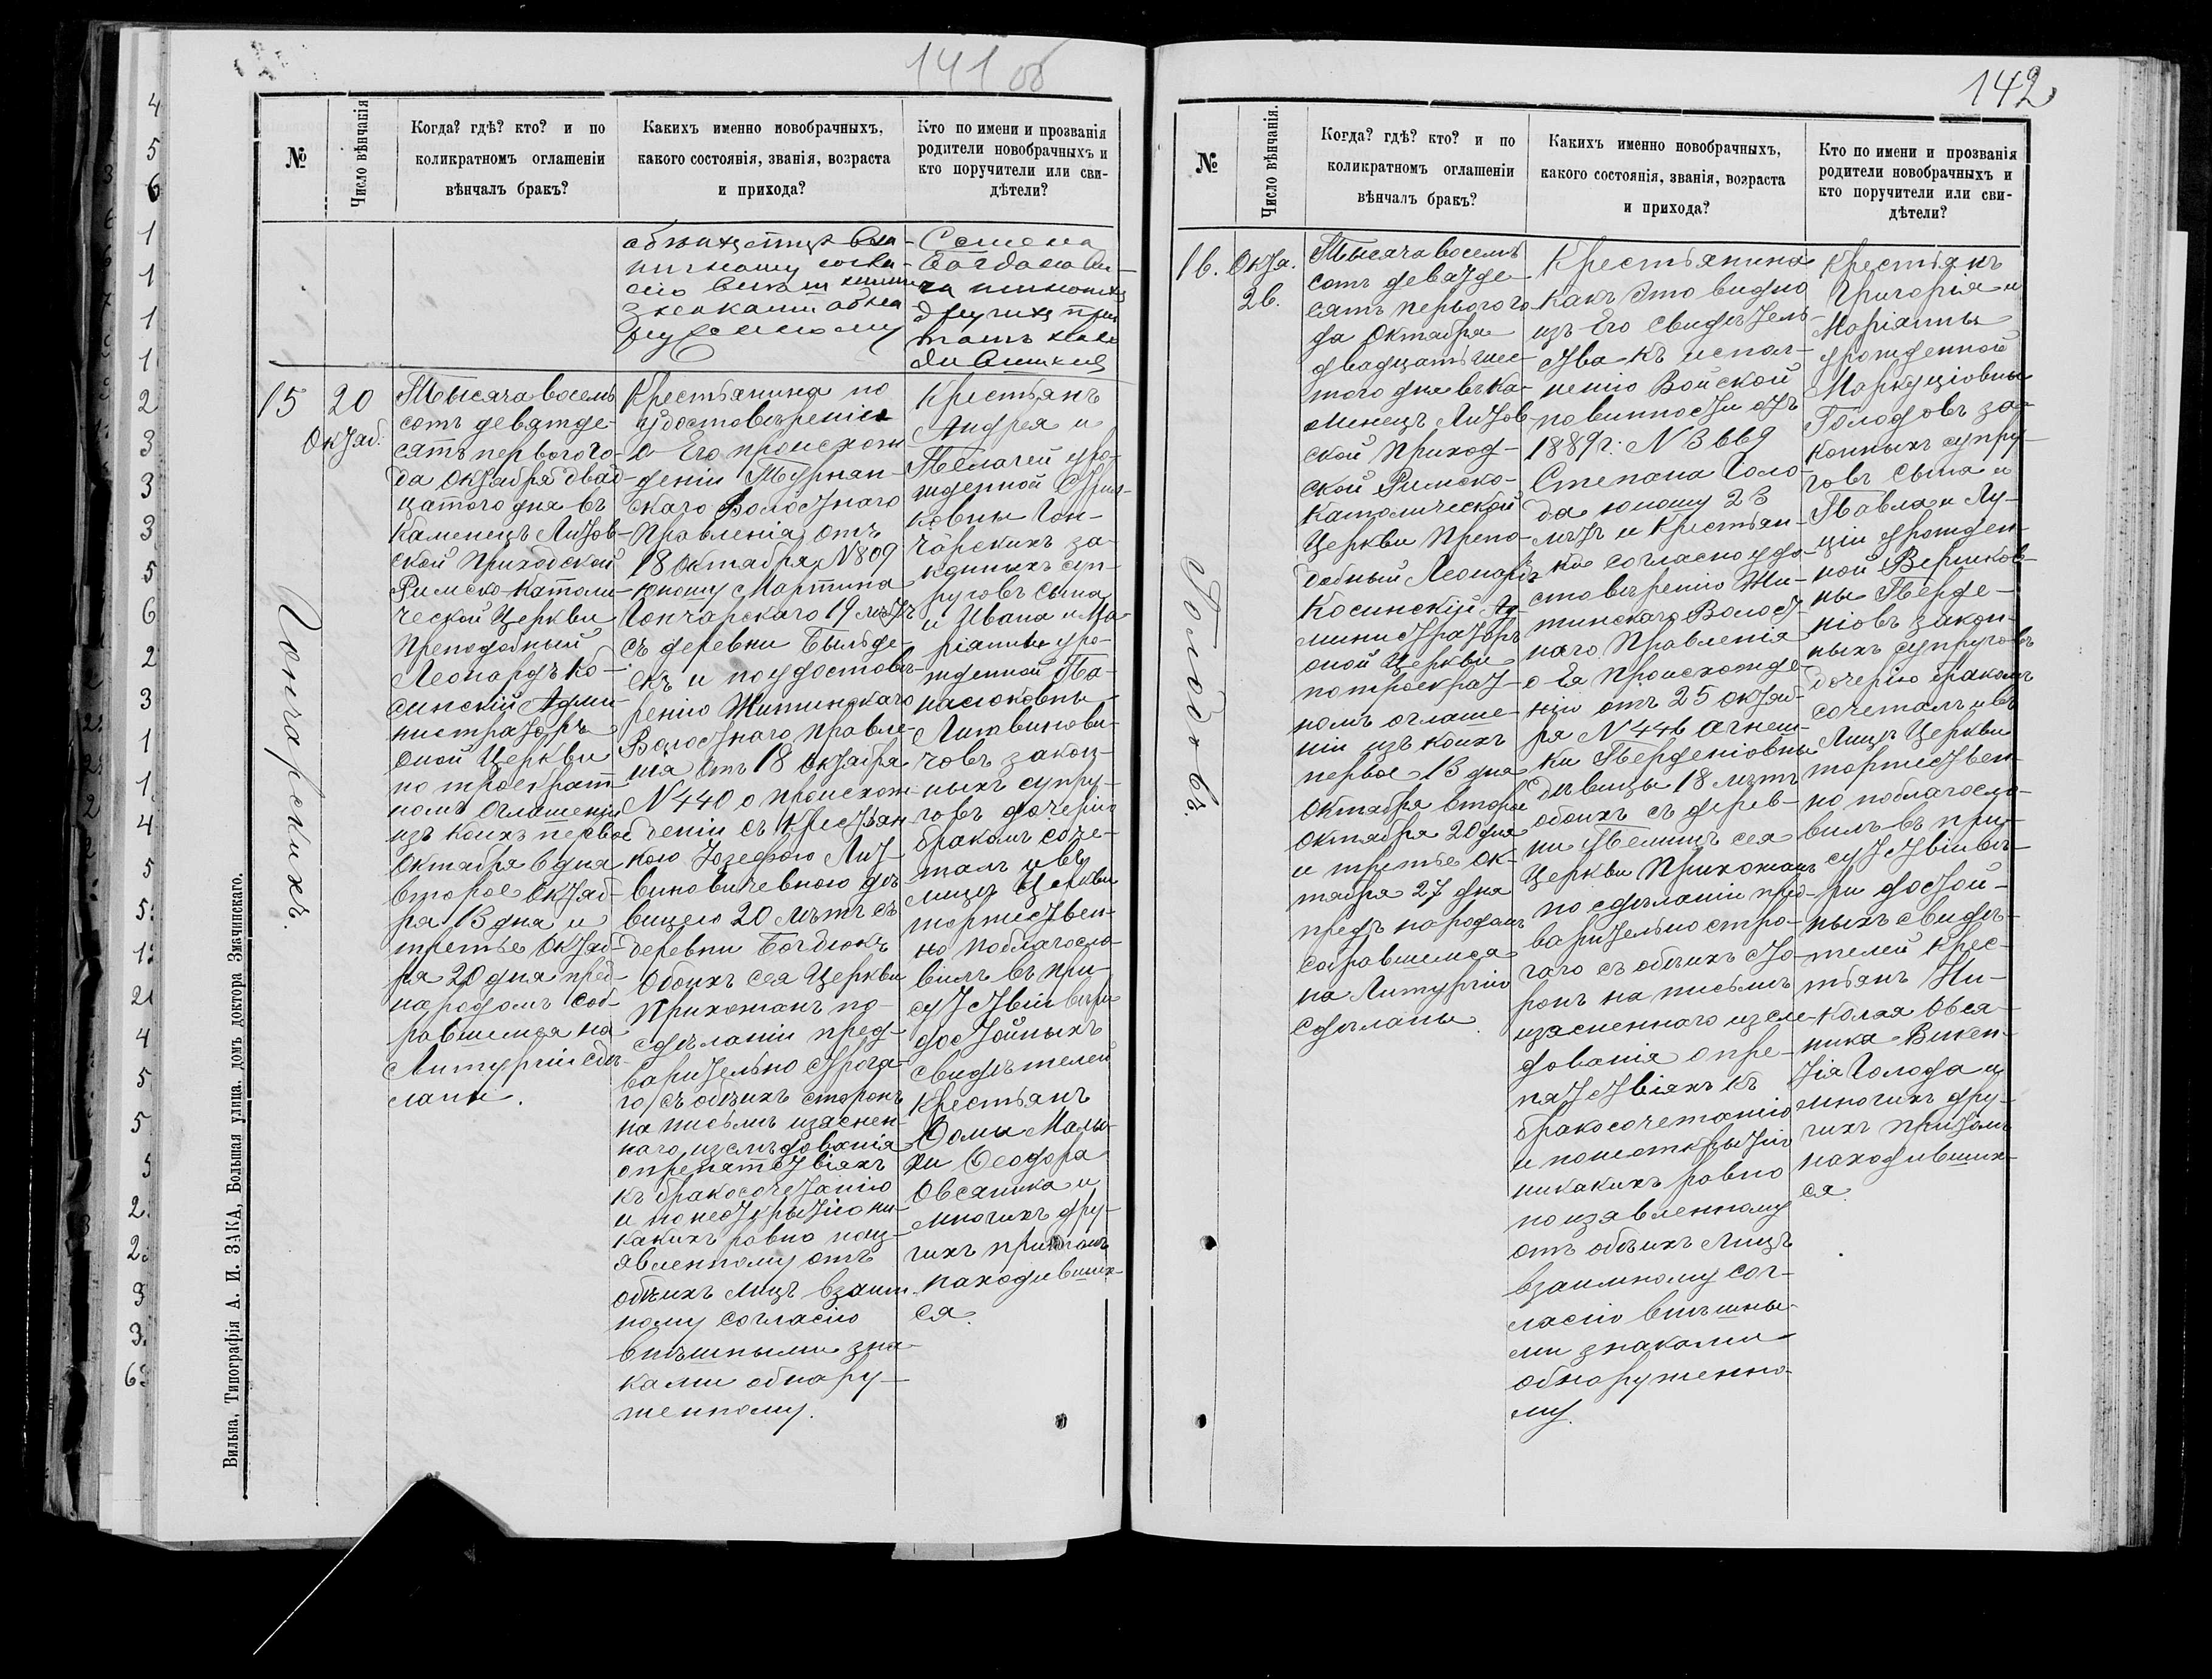 141 об
№
Число вѣнчанія
Когда? гдѣ? кто? и по
коликратномъ оглашеніи
вѣнчалъ бракъ?
Какихъ именно новобрачныхъ,
какого состоянія, званія, возраста
и прихода?
Кто по имени и прозванія
родители новобрачныхъ и
кто поручители или сви-
дѣтели?
знаками
Семена
15
20
Октяб.
Гончарскихъ.
Тысяча восемь
сотъ девятде-
сятъ первого го-
да Октября двад-
цатого дня въ
Каменецъ Литов-
ской Приходской
Римско-Католи-
ческой Церкви
Преподобный
Леонардъ Ко-
синскій Адми-
нистраторъ
оной Церкви
по троекрат-
номъ оглашеніи
изъ коихъ первое
Октября 6 дня
второе Октяб-
ря 13 дня и
третье Октяб-
ря 20 дня пред
народомъ соб-
равшемся на
Литургіи сдѣ-
ланы.
Крестьянина по
удостовѣренію
о Его происхож
деніи
скаго Волостного
Правленія отъ
18 Октября N 809
юношу Мартина
Гончарскаго 19 лѣтъ
съ деревни Бѣльде-
екъ и по удостовѣ-
ренію Житинскаго
Волостного Правле-
нія отъ 18 Октября
N 440 о происхож-
деніи съ Крестьян
кою Юзефою Лит-
виновичевною дѣ-
вицею 20 лѣтъ съ
деревни Богдюкъ
Обоихъ сея Церкви
Прихожанъ по
сдѣланіи пред-
варительно строга-
го съ обѣихъ сторонъ
на письмѣ изяснен-
наго изслѣдованія
о препятствіяхъ
къ бракосочетанію
и по неоткрытію ни-
какихъ равно поиз-
явленному отъ
обѣихъ лицъ взаим-
ному согласію
внѣшными зна-
ками обнару-
женному.
Крестьянъ
Андрея и
Пелагеи уро-
жденной
Гон-
чарскихъ за-
конныхъ суп-
руговъ сына
и Ивана и Ма
ріанны уро-
жденной Па-
насюковны
Литвинови-
човъ закон-
ныхъ супру-
говъ дочерію
бракомъ соче-
талъ и въ
лицѣ Церкви
торжествен-
но поблагосло-
вилъ въ при-
сутствіи вѣри
достойныхъ
Свидѣтелей
Крестьянъ
Ѳомы
Ѳеодора
Овсяника и
многихъ дру-
гихъ притомъ
находивших-
ся.
Вильна. Типографія А. И. ЗАКА, Большая улица. домъ доктора Змачинскаго.
142
№
Число вѣнчанія.
Когда? гдѣ? кто? и по
коликратномъ оглашеніи
вѣнчалъ бракъ?
Какихъ именно новобрачныхъ,
какого состоянія, званія, возраста
и прихода?
Кто по имени и прозванія
родители новобрачныхъ и
кто поручители или сви-
дѣтели?
16.
Октя.
26.
Голодовъ.
Тысяча восемь
сотъ девятде-
сятъ первого го
да Октября
двадцать шес-
того дня въ Ка-
менецъ Литов-
ской Приход-
ской Римско-
Католической
Церкви Препо-
добный Леонардъ
Косинскій Ад-
министраторъ
оной Церкви
по троекрат-
номъ оглаше-
ніи изъ коихъ
первое 13 дня
Октября второе
Октября 20 дня
и третье Ок-
тября 27 дня
предъ народомъ
собравшемся
на Литургіи
сдѣланы.
Крестьянина
какъ это видно
изъ Его свидѣтель-
ства къ испол-
ненію Воинской
повинности отъ
1889 г. N 3669
Степана Голо-
да юношу 23
лѣтъ и Крестьян-
ки согласно удо-
стовѣренію Жи-
тинскаго Волост-
наго Правленія
о Ея Происхожде-
ніи отъ 25 Октяб-
ря N 446 Агнеш-
ки
дѣвицы 18 лѣтъ
обоихъ съ дерев-
ни сея
Церкви Прихожанъ
по сдѣланіи пред-
варительно стро-
гаго съ обѣихъ сто-
ронъ на письмѣ
изясненного изслѣ-
дованія о пре-
пятствіяхъ къ
бракосочетанію
и по неоткрытію
никакихъ равно
по изявленному
отъ обѣихъ лицъ
взаимному сог-
ласію внѣшны-
ми знаками
обнаруженно-
му.
Крестьянъ
Григорія и
Маріанны
урожденной
Голодовъ за-
конныхъ супру-
говъ сына и
Павла и Лу-
ціи урожден-
ной
закон-
ныхъ супруговъ
дочерію бракомъ
сочеталъ и въ
Лицѣ Церкви
торжествен-
но поблагосло-
вилъ въ при-
сутствіи вѣ-
ри достой-
ныхъ свидѣ-
телей Крес-
тьянъ Ни-
колая Овся-
ника Викен-
тія Голода и
многихъ дру-
гихъ притомъ
находивших-
ся.